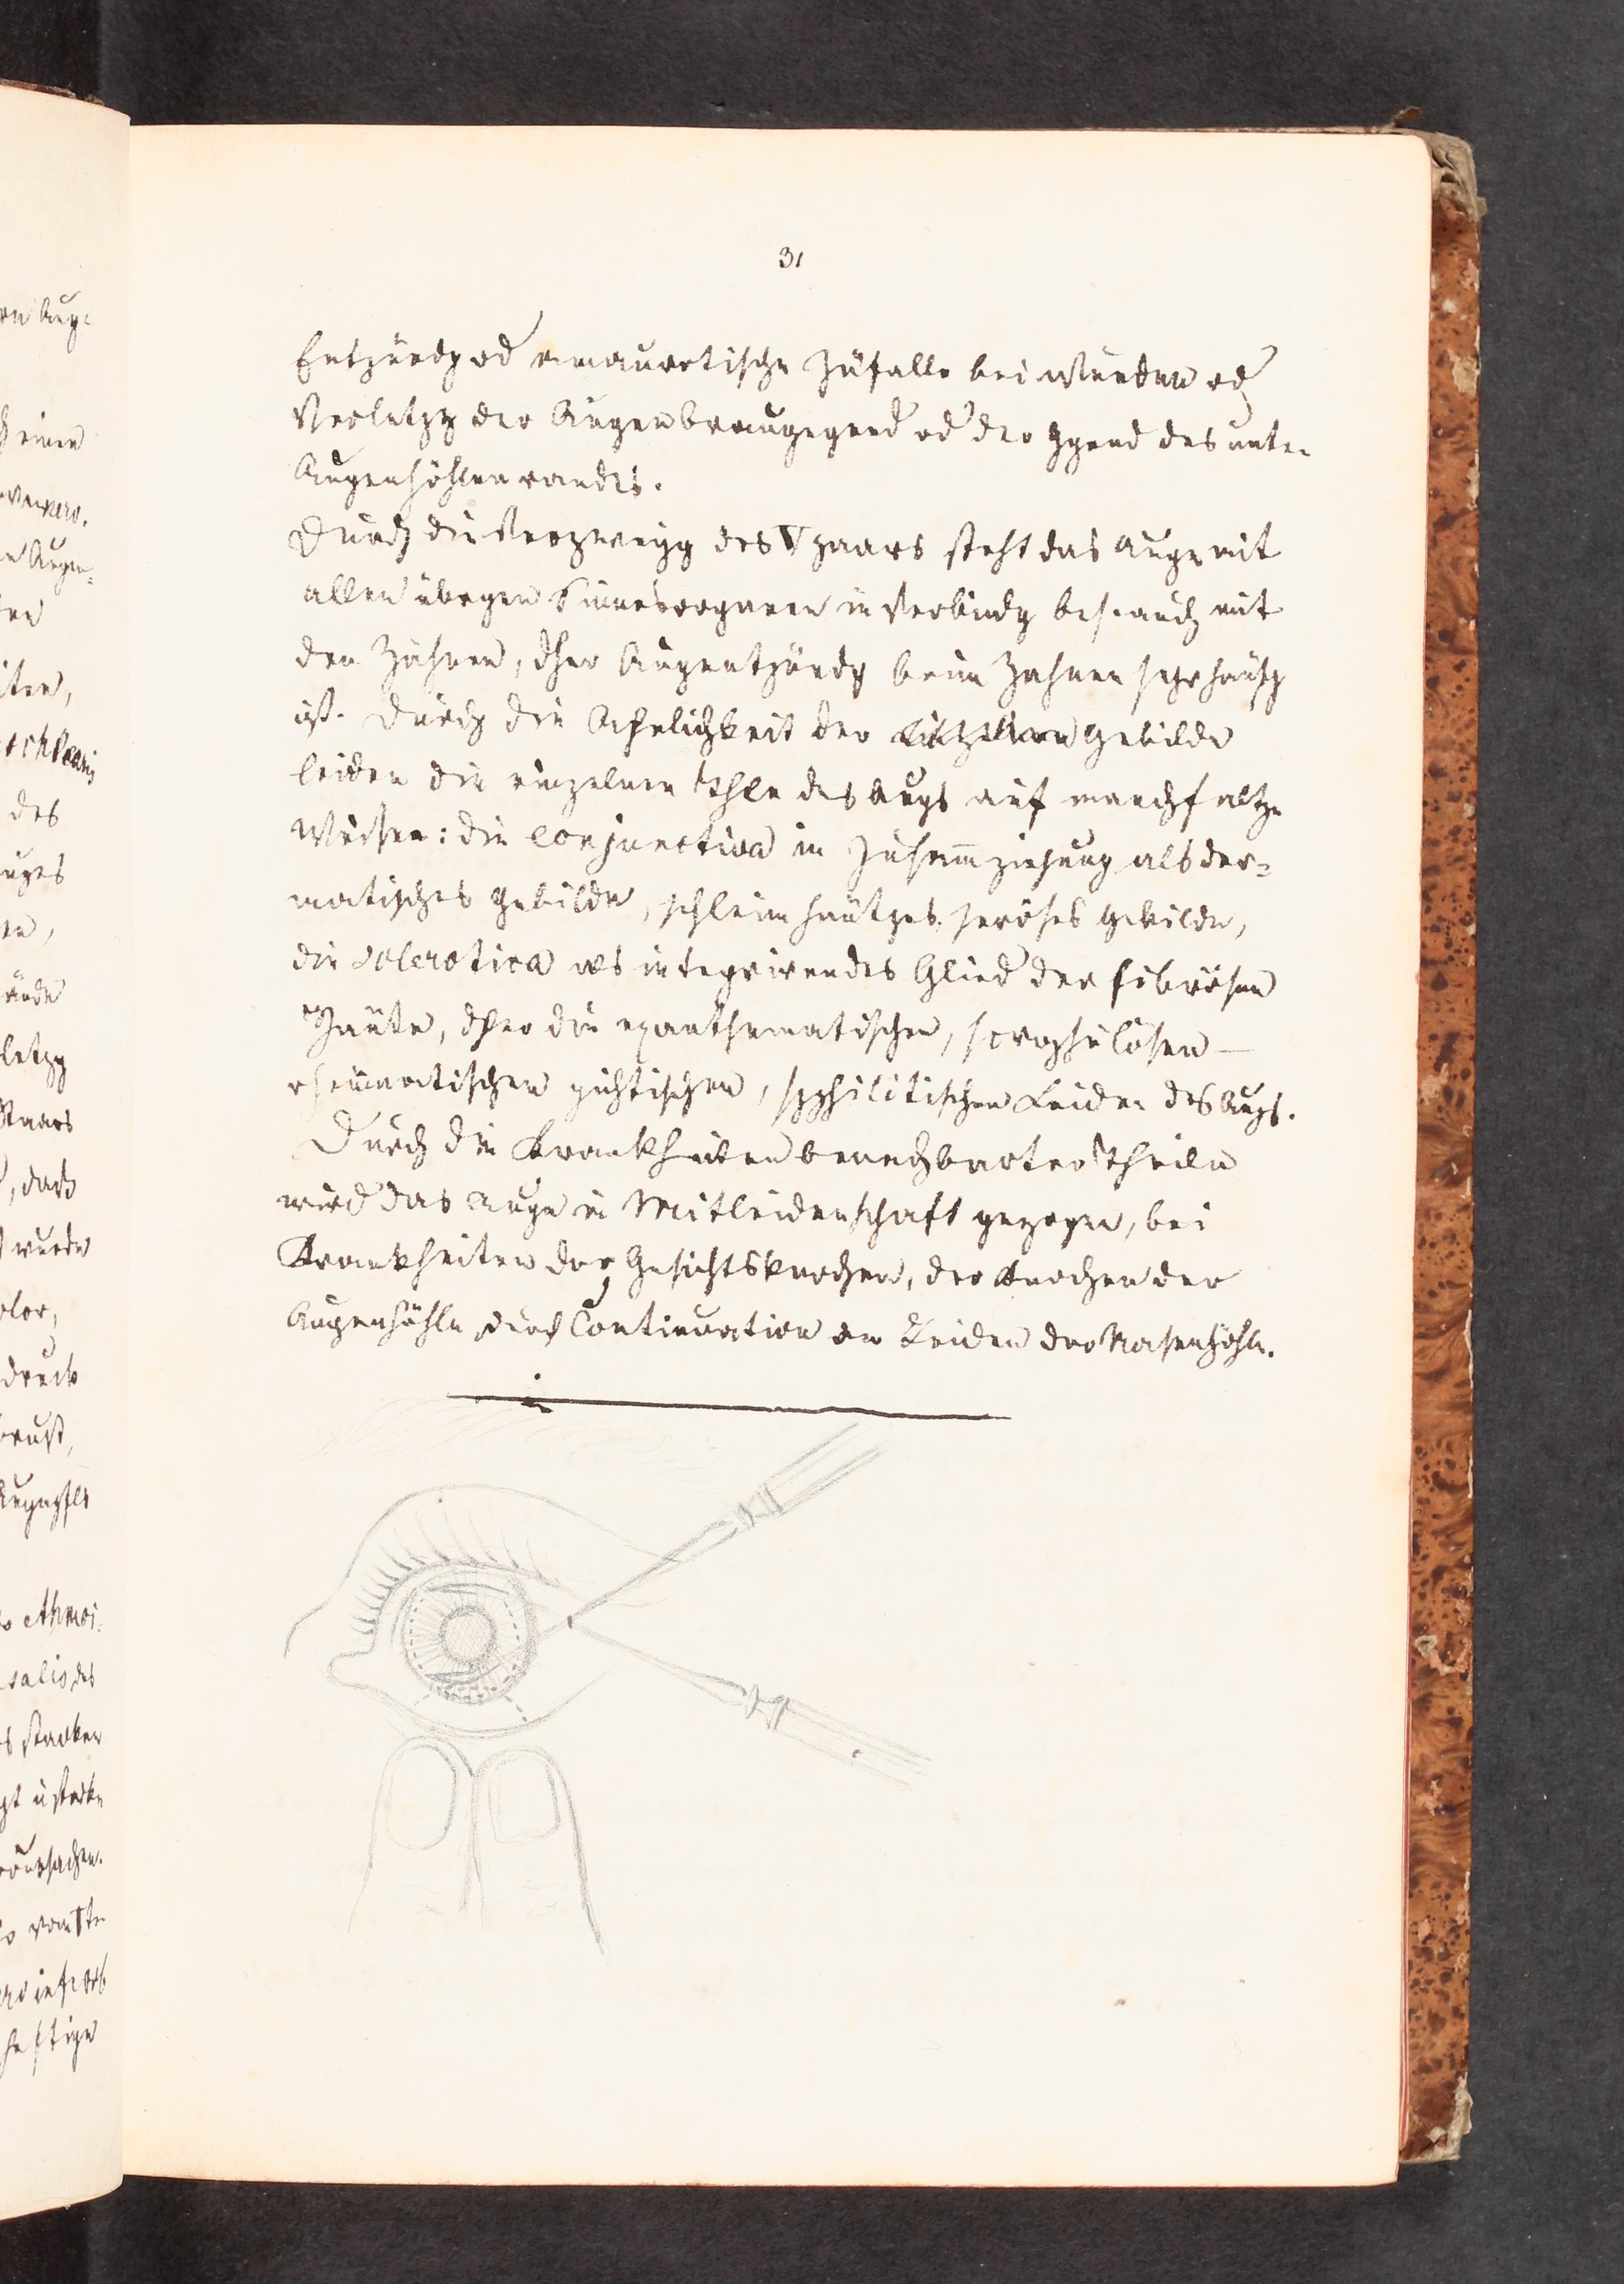 31
Entzündg od amaurotische Zufälle bei Wunden od
Verletzg der Augenbraugegend od der Ggend des unte-
Augenhöhlenrandes.
Durch die Verzweigg des V paars steht das Auge mit
allen übrgen Sinnesorganen in Verbindg bes. auch mit
den Zähnen, dher Augentzündg beim Zahnen sehr häufg
ist. Durch die Aehnlichkeit der Gebilde
leiden die einzelnen Thle des Augs auf manchfaltge
Weisen: die conjunctiva in Zusammziehung als der=
matisches Gebilde, schleimhäutges, seröses Gebilde,
die sclerotica als integrirendes Glied der fibrösen
Häute, dher die exanthematischen, scrophulösen —
rheumatischen gichtischen, syphilitischen Leiden des Augs.
Durch die Krankheiten benachbarter Theile
wird das Auge in Mitleidenschaft gezogen, bei
Krankheiten der Gesichtsknochen, der Knochen der
Augenhöhle, durch Continuation der Leiden der Nasenhöhle.